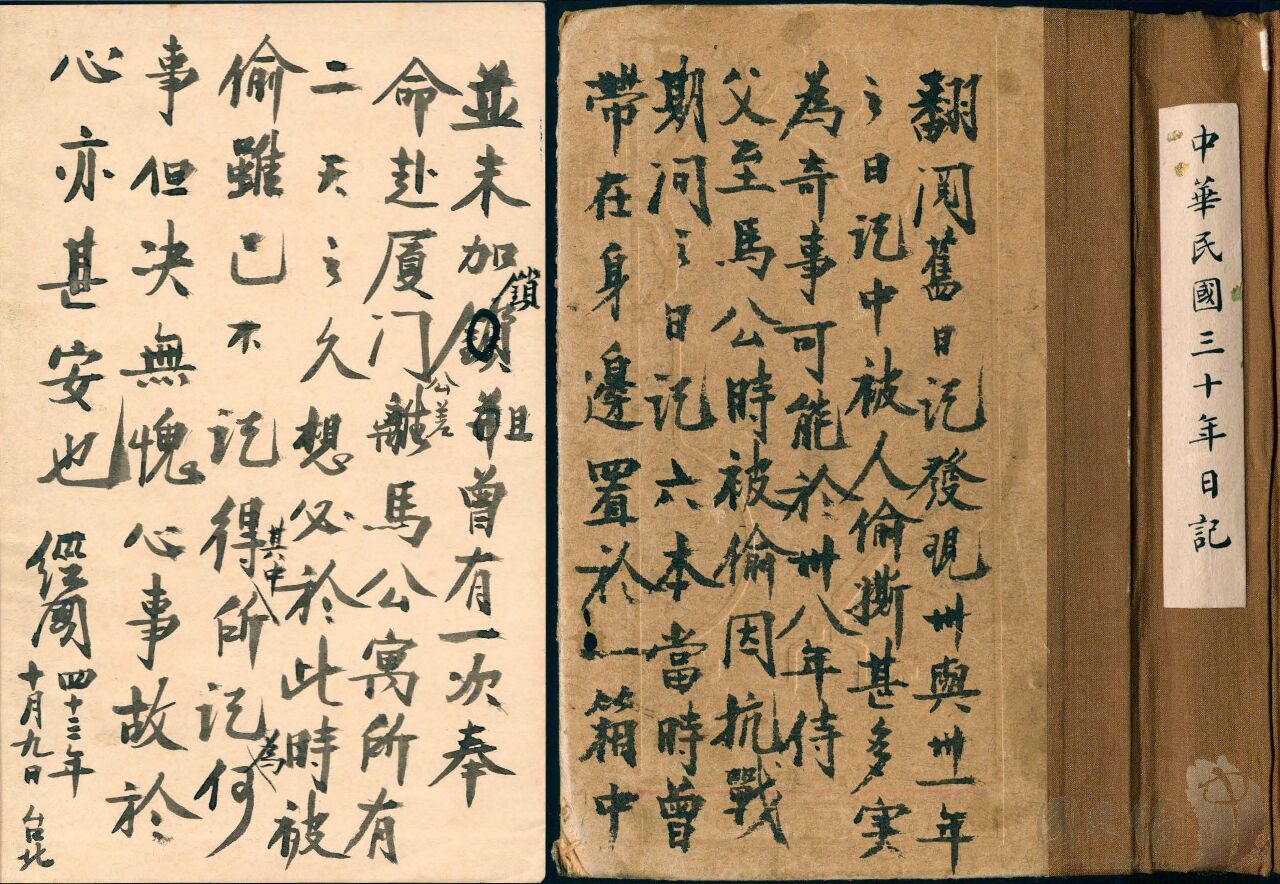 中華民國三十年日記
翻阅舊日记發現卅與卅一年
之日记中被人偷撕甚多实
為奇事可能於卅八年侍
父至馬公時被偷因抗戰
期间之日记六本當時曾
帶在身邊置於一箱中
並未加鎖且曾有一次奉
命赴厦门公差離馬公寓所有
二天之久想必於此時被
偷雖已不记得其中所记為何
事但决無愧心事故於
心亦甚安也
經國
四十三年
十月九日 台北